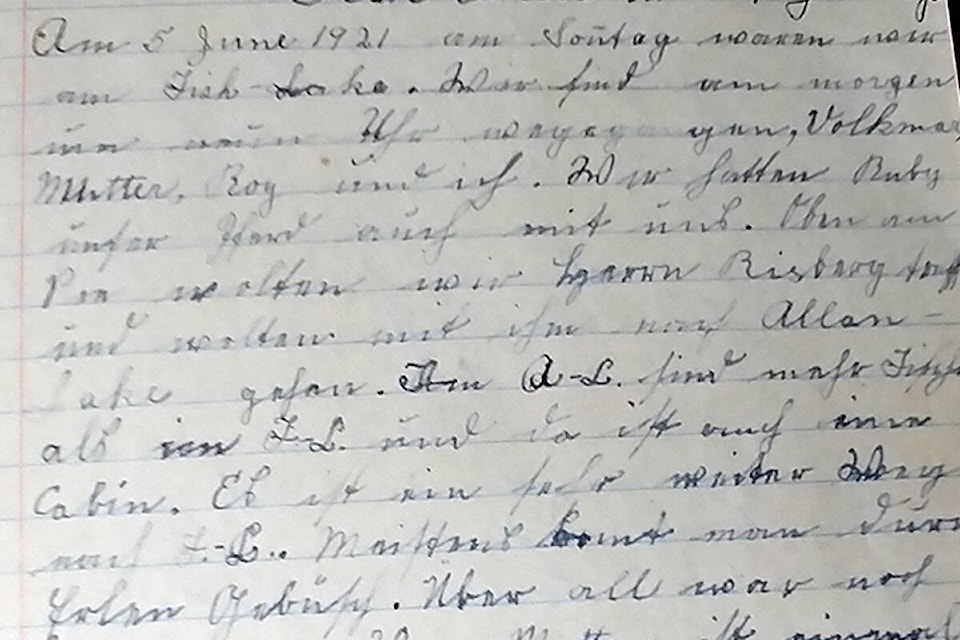 Am 5 June 1921 am Sontag waren wir
am Fish-Lake. Wir sind am morgen
um neun Uhr wegegangen, Volkmar,
Mutter, Roy und ich. Wir hatten Ruby
unser Pferd auch mit uns. Oben am
wolten wir Herrn Risberg treff
und wolten mit ihm nach Allan-
Lake gehen. Am A-L. sind mehr Fische
als im F-L. und da ist auch eine
Cabin. Es ist ein sehr weiter Weg
nach F.-L.. Meistens komt man dur
Erlen Gebüsch. Über all war noch
ist einmal